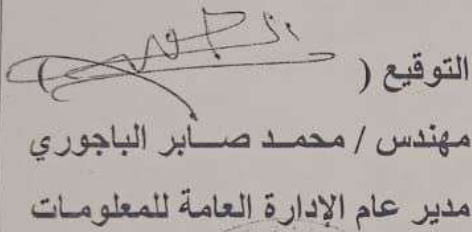 التوقيع (
مهندس / محمد صابر الباجوري
مدير عام الإدارة العامة للمعلومات